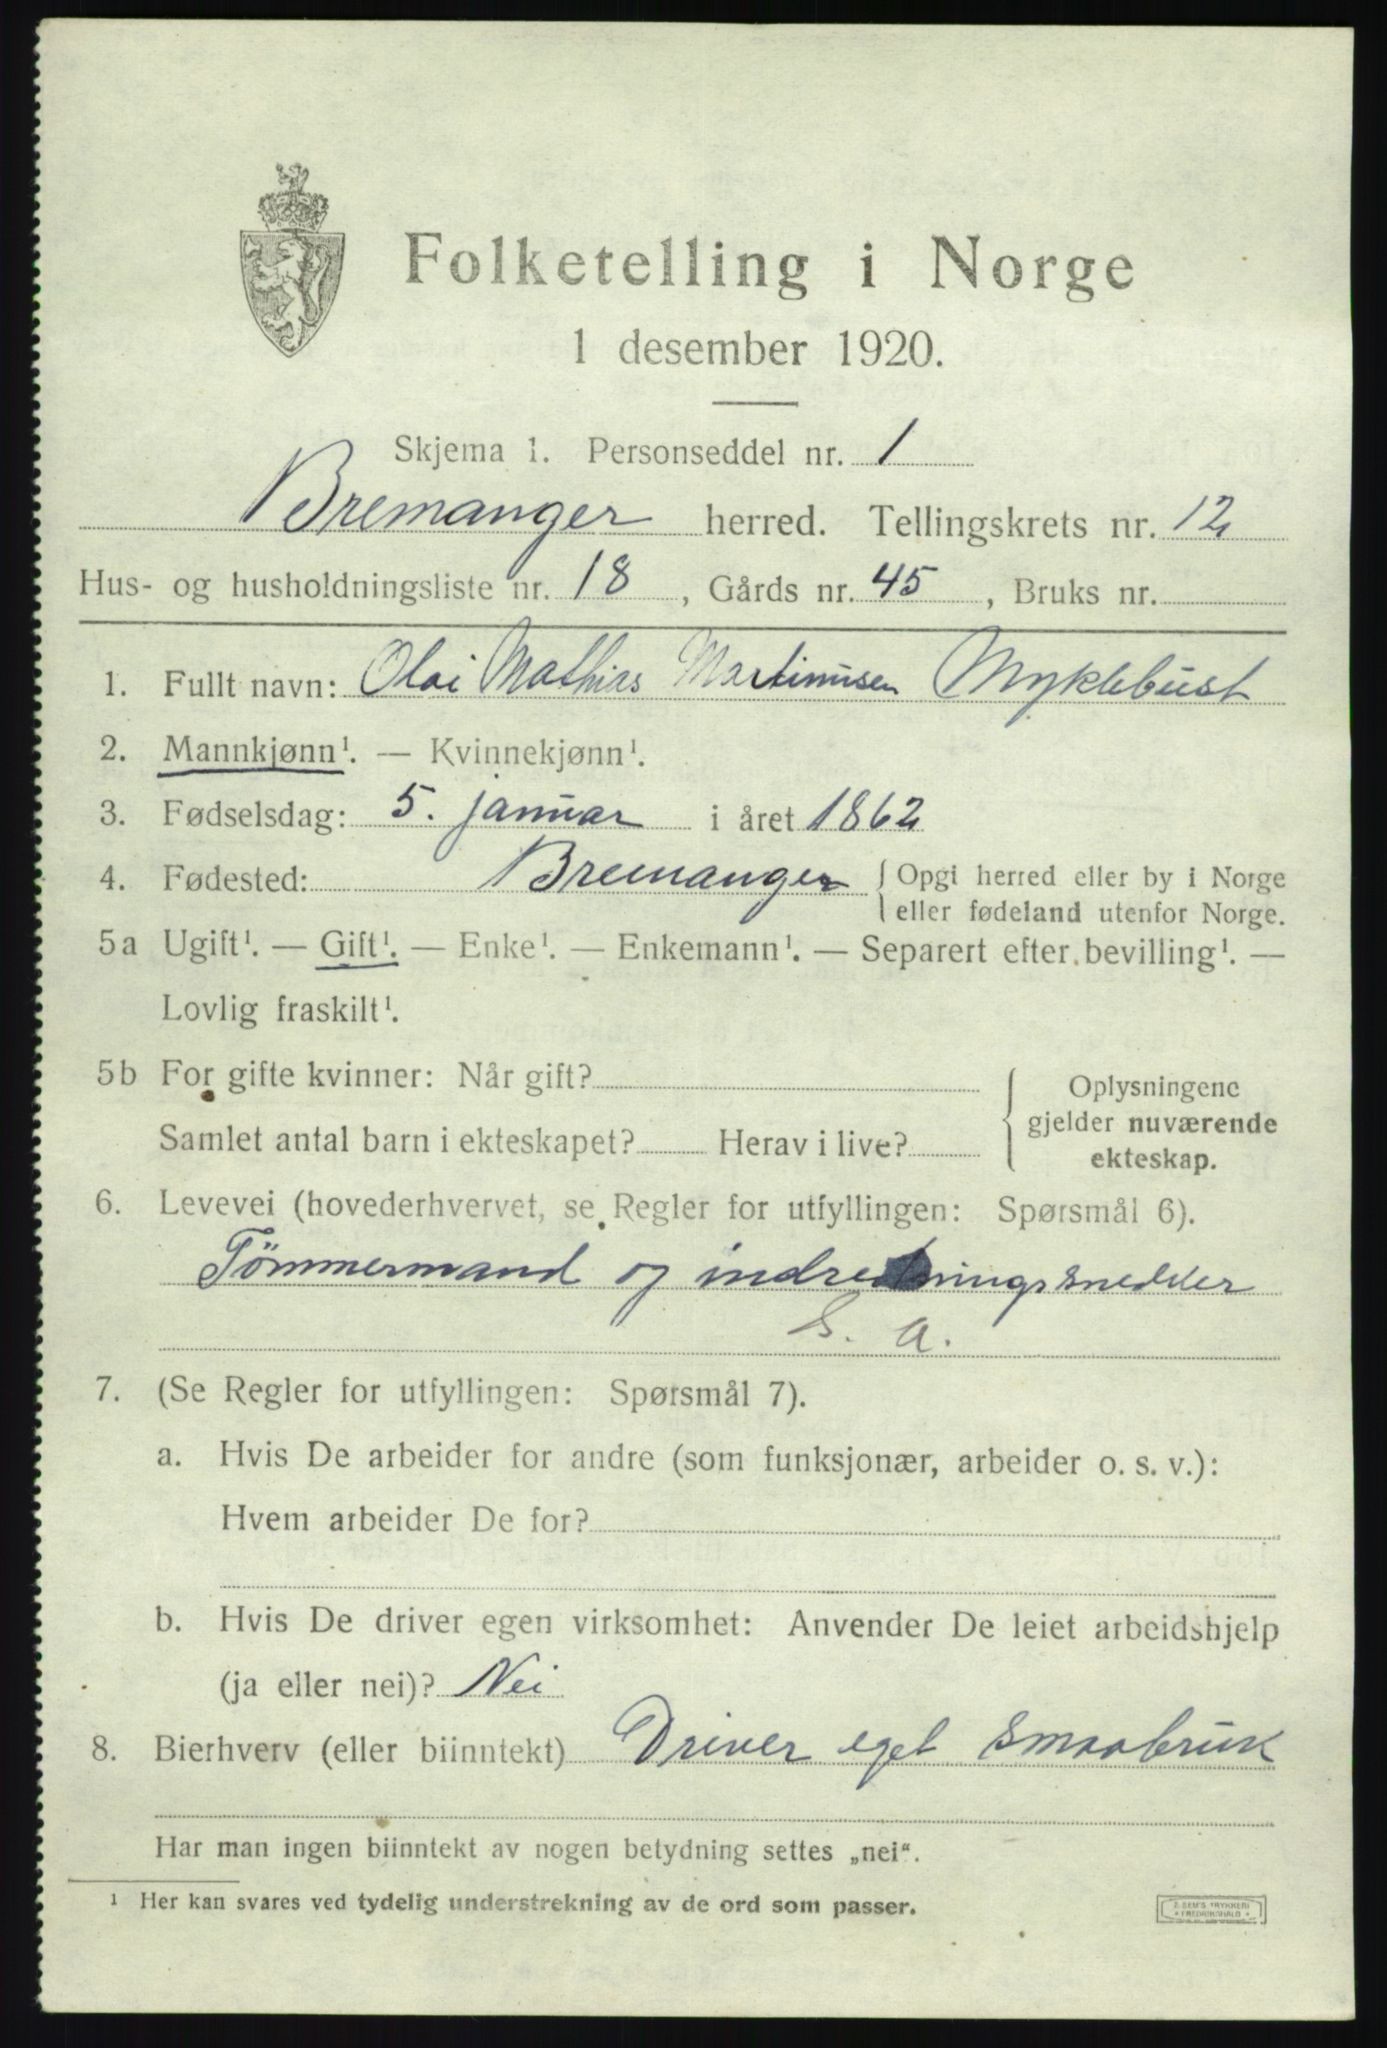 Folketelling i Norge
1 desember 1920.
Skjema 1. Personseddel nr. 1
Bremanger herred. Tellingskrets nr. 12
Hus- og husholdningsliste nr. 18, Gårds nr. 45, Bruks nr.
1. Fullt navn: Olai Mathias Martinusen Myklebust
2. Mannkjønn¹. — Kvinnekjønn¹.
3. Fødselsdag: 5. januar i året 1862
4. Fødested: Bremanger { Opgi herred eller by i Norge
eller fødeland utenfor Norge.
5a Ugift¹. — Gift¹. — Enke¹. — Enkemann¹. — Separert efter bevilling¹. —
Lovlig fraskilt¹.
5b For gifte kvinner: Når gift?
Samlet antal barn i ekteskapet? Herav i live?
Oplysningene
gjelder nuværende
ekteskap.
6. Levevei (hovederhvervet, se Regler for utfyllingen: Spørsmål 6).
Tømmermand og indredningssnedker
S. A.
7. (Se Regler for utfyllingen: Spørsmål 7).
a. Hvis De arbeider for andre (som funksjonær, arbeider o. s. v.):
Hvem arbeider De for?
b. Hvis De driver egen virksomhet: Anvender De leiet arbeidshjelp
(ja eller nei)? Nei
8. Bierhverv (eller biinntekt) Driver eget smaabruk
Har man ingen biinntekt av nogen betydning settes „nei“.
¹ Her kan svares ved tydelig understrekning av de ord som passer.
E SEM'S TRYKKERI
FREDRIKSHALD